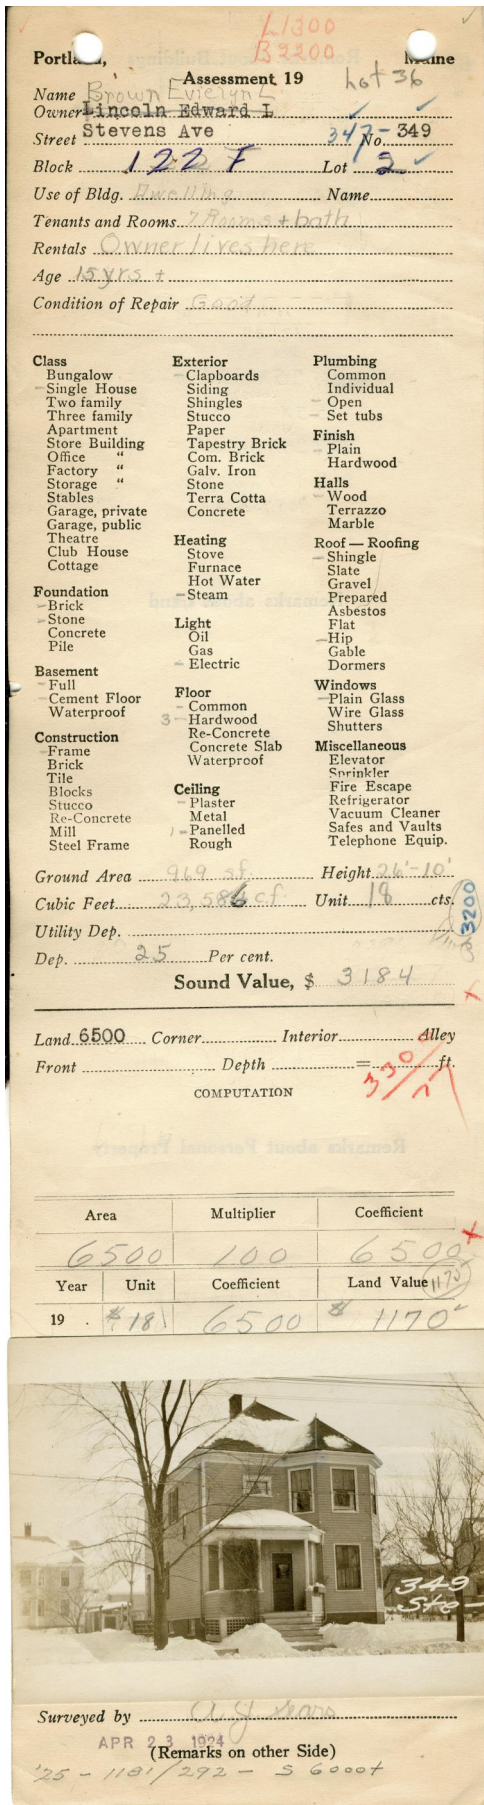 L1300
B3200
Portland, Maine
Assessment 19
Lot 36
Name Brown Evielyn L
Owner Lincoln Edward L
Street Stevens Ave 347- No. 349
Block 122 F Lot 2
Use of Bldg. Dwelling Name
Tenants and Rooms 7 Rooms + bath
Rentals Owner lives here
Age 15 yrs +
Condition of Repair Good
Class
Bungalow
Single House
Two family
Three family
Apartment
Store Building
Office "
Factory "
Storage "
Stables
Garage, private
Garage, public
Theatre
Club House
Cottage
Foundation
Brick
Stone
Concrete
Pile
Basement
Full
Cement Floor
Waterproof
Construction
Frame
Brick
Tile
Blocks
Stucco
Re-Concrete
Mill
Steel Frame
Exterior
Clapboards
Siding
Shingles
Stucco
Paper
Tapestry Brick
Com. Brick
Galv. Iron
Stone
Terra Cotta
Concrete
Heating
Stove
Furnace
Hot Water
Steam
Light
Oil
Gas
Electric
Floor
Common
3 Hardwood
Re-Concrete
Concrete Slab
Waterproof
Ceiling
Plaster
Metal
1 Panelled
Rough
Plumbing
Common
Individual
Open
Set tubs
Finish
Plain
Hardwood
Halls
Wood
Terrazzo
Marble
Roof — Roofing
Shingle
Slate
Gravel
Prepared
Asbestos
Flat
Hip
Gable
Dormers
Windows
Plain Glass
Wire Glass
Shutters
Miscellaneous
Elevator
Sprinkler
Fire Escape
Refrigerator
Vacuum Cleaner
Safes and Vaults
Telephone Equip.
Ground Area 969 sf. Height 26'-10'
Cubic Feet 23,586 cf. Unit 18 cts.
3200
Utility Dep.
Dep. 25 Per cent.
Sound Value, $ 3184
Land 6500 Corner Interior Alley
Front Depth = ft.
COMPUTATION
Area Multiplier Coefficient
6500 100 6500
Year Unit Coefficient Land Value 1170
19 . $ .18 6500 $ 1170
349
Ste-
Surveyed by A J Sears
APR 23 1924
(Remarks on other Side)
'25 - 1181/292 - S 6000+